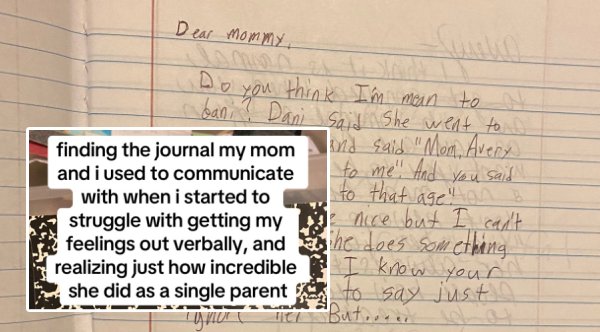 Dear mommy,
Do you think I'm mean to
Dani? Dani said she went to
and said "Mom, Avery
to me". And you said
to that age".
nice but I can't
he does something
I know your
to say just
ignore her. But.....
finding the journal my mom
and i used to communicate
with when i started to
struggle with getting my
feelings out verbally, and
realizing just how incredible
she did as a single parent